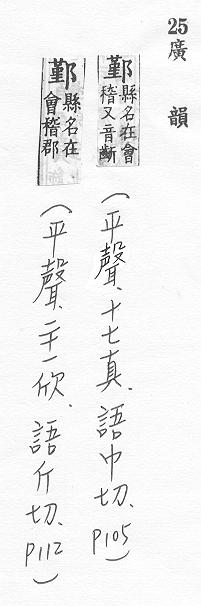 25廣韻
鄞縣名在會稽又音斷
(平聲、十七真、語巾切、P105)
鄞縣名在會稽郡
(平聲、二十一欣、語斤切、P112)